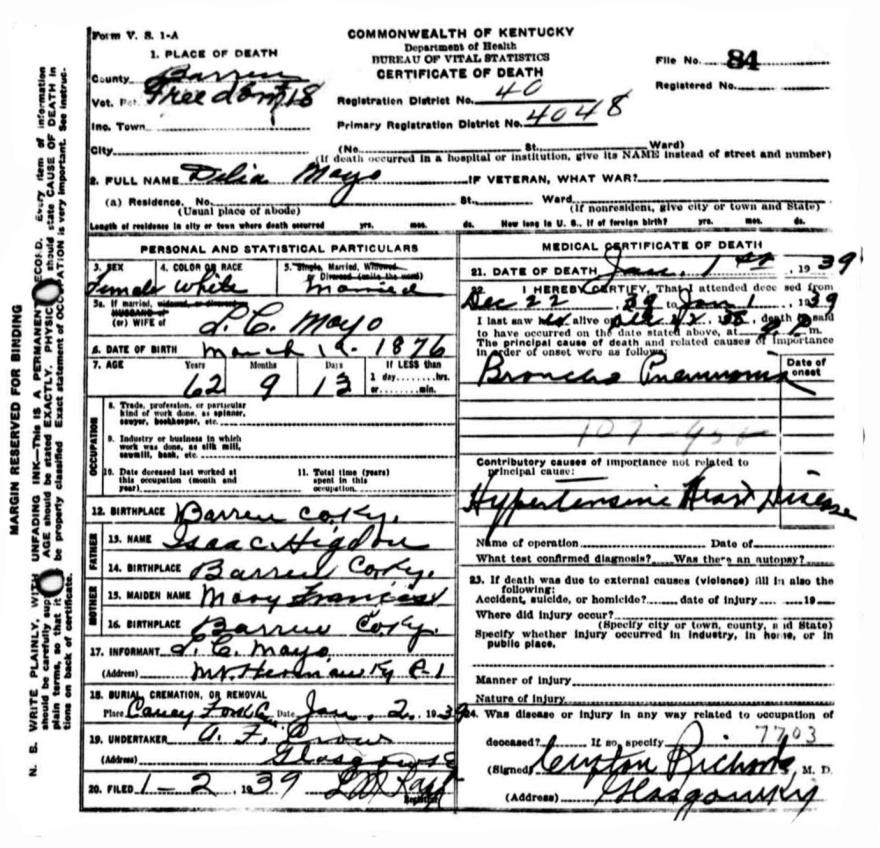 Form V. S. 1-A
COMMONWEALTH OF KENTUCKY
Department of Health
BUREAU OF VITAL STATISTICS
CERTIFICATE OF DEATH
File No. 84
Registered No.
1. PLACE OF DEATH
County Barren
Vot. Pct. Freedom 18
Inc. Town
City
Registration District No. 40
Primary Registration District No. 4048
(No. St. Ward)
(If death occurred in a hospital or institution, give its NAME instead of street and number)
2. FULL NAME Delia Mayo IF VETERAN, WHAT WAR?
(a) Residence. No. St. Ward
(Usual place of abode) (If nonresident, give city or town and State)
Length of residence in city or town where death occurred yrs. mos. ds. How long in U. S., if of foreign birth? yrs. mos. ds.
PERSONAL AND STATISTICAL PARTICULARS
3. SEX 4. COLOR OR RACE 5. Single, Married, Widowed
or Divorced (write the word)
Female White Married
5a. If married, widowed, or divorced
HUSBAND of
(or) WIFE of L. C. Mayo
6. DATE OF BIRTH March 1876
7. AGE Years Months Days If LESS than
62 9 13 1 day hrs.
or min.
OCCUPATION
8. Trade, profession, or particular
kind of work done, as spinner,
sawyer, bookkeeper, etc.
9. Industry or business in which
work was done, as silk mill,
sawmill, bank, etc.
10. Date deceased last worked at
this occupation (month and
year)
11. Total time (years)
spent in this
occupation
12. BIRTHPLACE Barren Co Ky.
FATHER
13. NAME Isaac Higdon
14. BIRTHPLACE Barren Co Ky.
MOTHER
15. MAIDEN NAME Mary Frances
16. BIRTHPLACE Barren Co Ky.
17. INFORMANT L. C. Mayo
(Address) Mt. Herman Ky R-1
18. BURIAL, CREMATION, OR REMOVAL
Place Caney Fork Date Jan. 2, 1939
19. UNDERTAKER A. F. Crow
(Address) Glasgow
20. FILED 1-2, 1939
Registrar
MEDICAL CERTIFICATE OF DEATH
21. DATE OF DEATH Jan. 1st, 1939
22. I HEREBY CERTIFY, That I attended deceased from
Dec 22, 39 to Jan 1, 1939
I last saw her alive on Dec , 1938, death is said
to have occurred on the date stated above, at 9 P. m.
The principal cause of death and related causes of importance
in order of onset were as follows:
Date of
onset
Broncho Pneumonia
107
Contributory causes of importance not related to
principal cause:
Hypertensive Heart Disease
Name of operation Date of
What test confirmed diagnosis? Was there an autopsy?
23. If death was due to external causes (violence) fill in also the
following:
Accident, suicide, or homicide? date of injury 19
Where did injury occur?
(Specify city or town, county, and State)
Specify whether injury occurred in industry, in home, or in
public place.
Manner of injury
Nature of injury
24. Was disease or injury in any way related to occupation of
deceased? If so, specify 7703
(Signed) M. D.
(Address) Glasgow Ky
MARGIN RESERVED FOR BINDING
N. B. WRITE PLAINLY, WITH UNFADING INK—This IS A PERMANENT RECORD. Every item of information
should be carefully supplied. AGE should be stated EXACTLY. PHYSICIANS should state CAUSE OF DEATH in
plain terms, so that it may be properly classified. Exact statement of OCCUPATION is very important. See instruc-
tions on back of certificate.